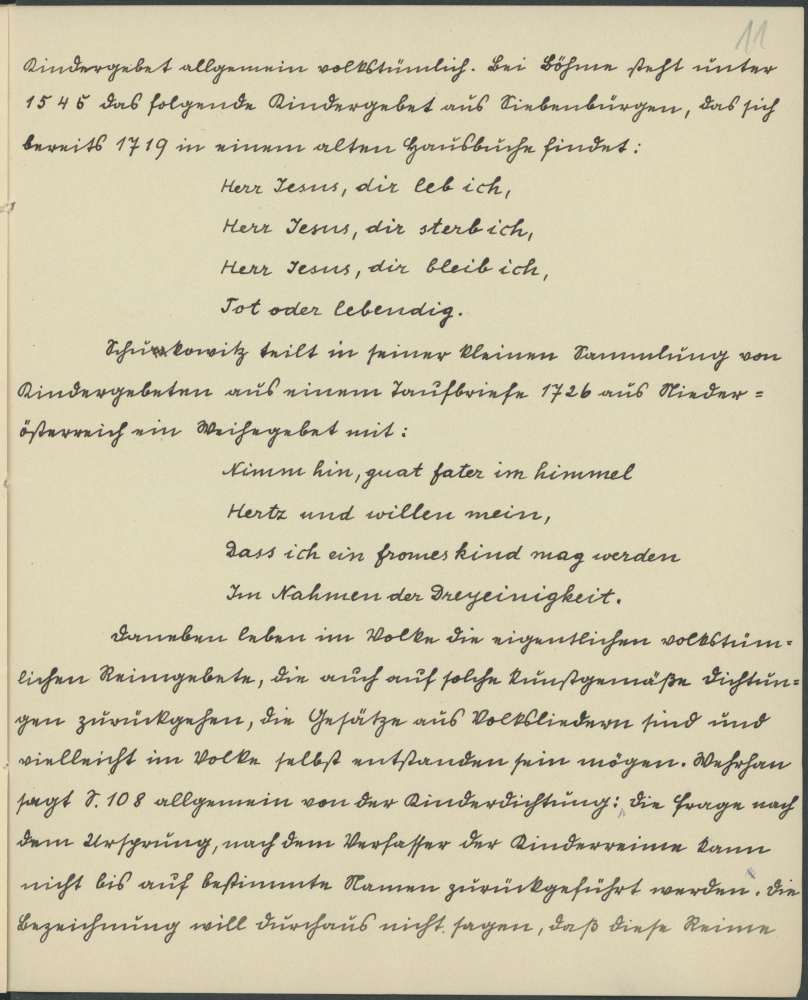 11
Kindergebet allgemein volkstümlich. Bei Böhme steht unter
1545 das folgende Kindergebet aus Siebenbürgen, das sich
bereits 1719 in einem alten Hausbuche findet:
Herr Jesus, dir leb ich,
Herr Jesus, dir sterb ich,
Herr Jesus, dir bleib ich,
Tot oder lebendig.
teilt in seiner kleinen Sammlung von
Kindergebeten aus einem Taufbriefe 1726 aus Nieder=
österreich ein Weihegebet mit:
Nimm hin, guat fater im himmel
Hertz und willen mein,
Dass ich ein fromes kind mag werden
Im Nahmen der Dreyeinigkeit.
Daneben leben im Volke die eigentlichen volkstüm=
lichen Reimgebete, die auch auf solche kunstgemäße Dichtun=
gen zurückgehen, die Gesätze aus Volksliedern sind und
vielleicht im Volke selbst entstanden sein mögen. Wehrhan
sagt S. 108 allgemein von der Kinderdichtung: Die Frage nach
dem Ursprung, nach dem Verfasser der Kinderreime kann
nicht bis auf bestimmte Namen zurückgeführt werden. Die
Bezeichnung will durchaus nicht sagen, daß diese Reime